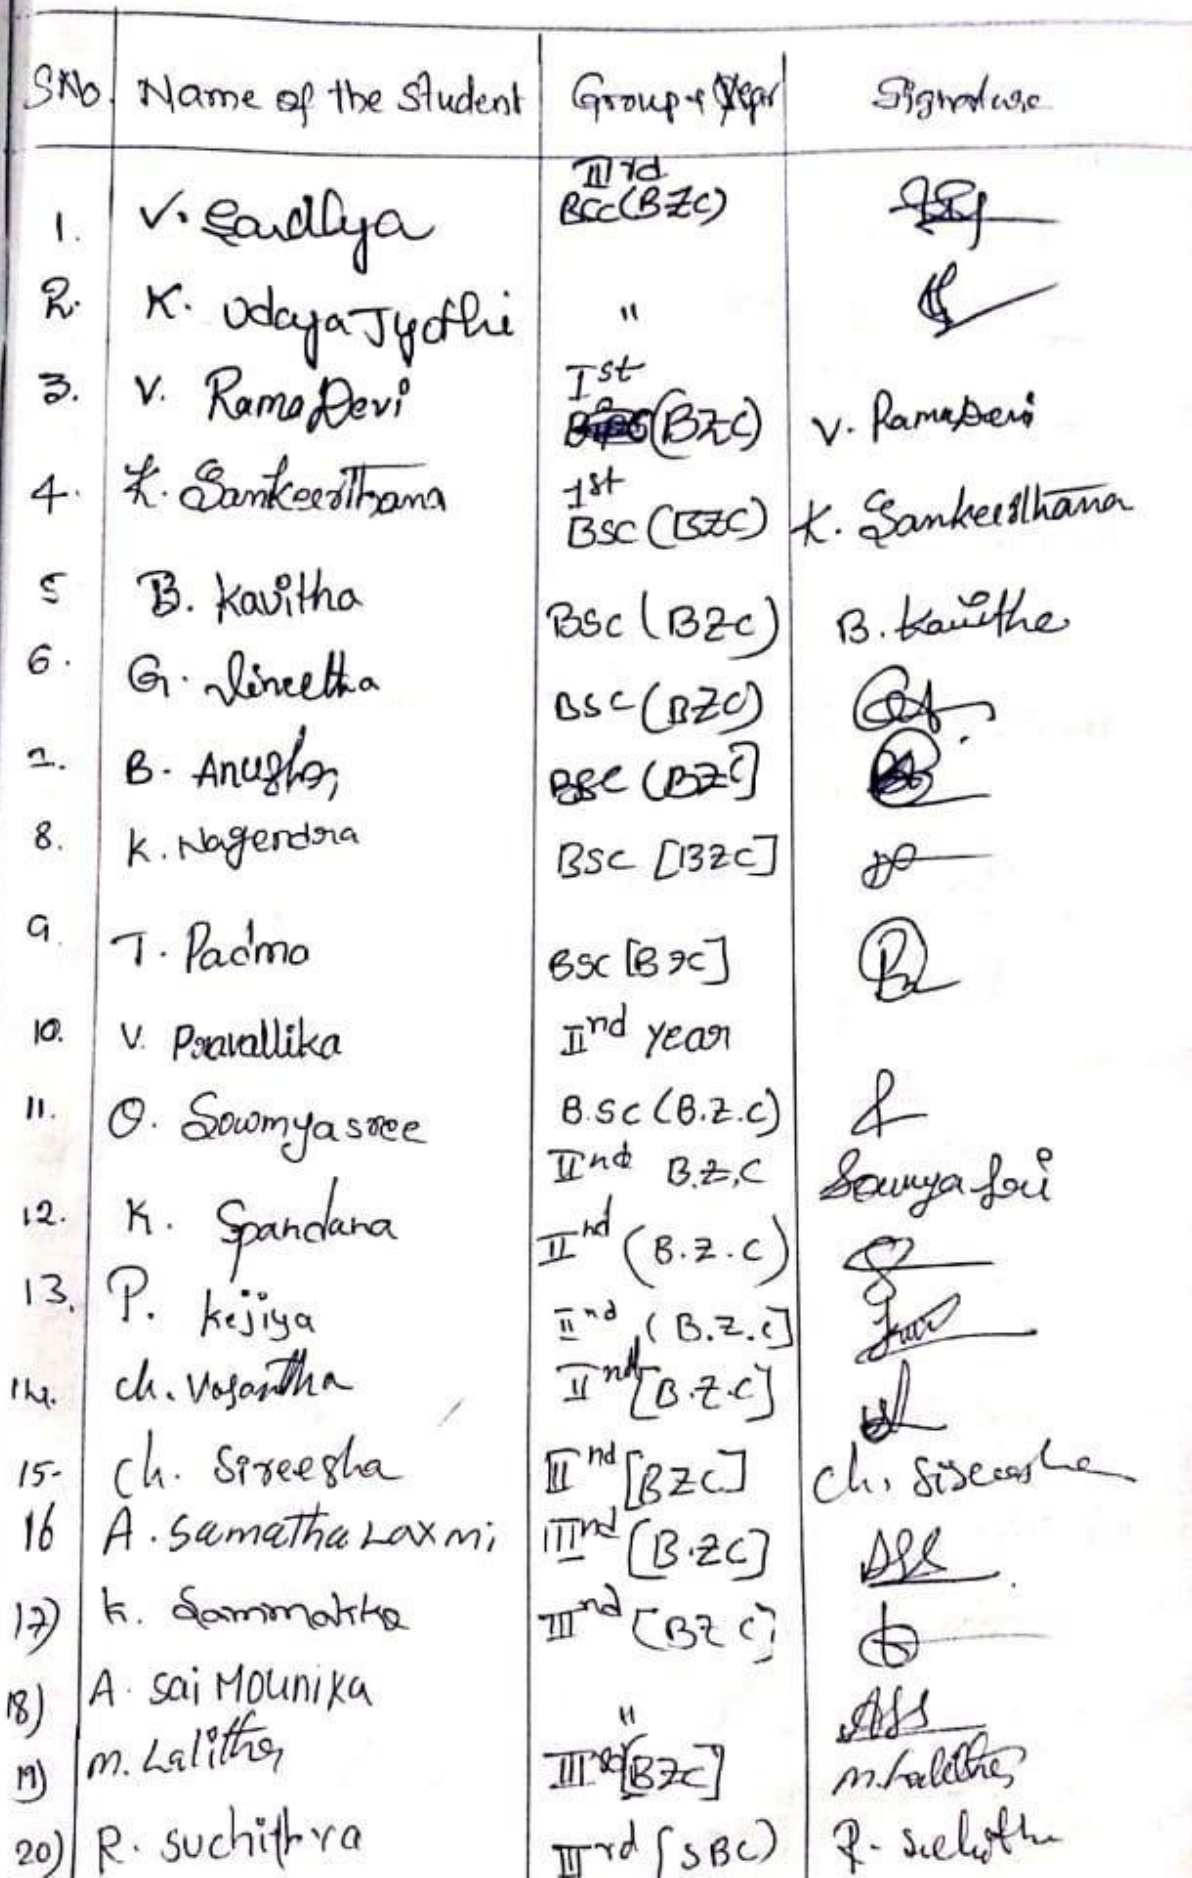 SNo. Name of the Student Group & Year Signature
IIIrd
1. V. Sandhya BSc (BZC)
2. K. Udaya Jyothi "
Ist
3. V. Rama Devi (BZC) V. Rama Devi
1st
4. K. Sankeerthana BSC (BZC) K. Sankeerthana
5 B. Kavitha BSC (BZC) B. Kavitha
6. G. Vineetha BSC (BZC)
7. B. Anusha BSC (BZC]
8. K. Nagendra BSC [BZC]
9. T. Padma BSC [BZC]
10. V. Pravallika IInd year
11. O. Sowmyasree B.SC (B.Z.C)
IInd B.Z.C Sowmya Sri
12. K. Spandana IInd (B.Z.C)
13. P. Kejiya IInd (B.Z.C]
14. Ch. Vasantha IInd [B.Z.C]
15- Ch. Sireesha IInd [BZC] Ch. Sireesha
16 A. Samatha Laxmi IIInd [B.ZC]
17) K. Sammakka IIInd [BZC]
18) A. Sai Mounika "
19) M. Lalitha IIIrd [BZC] M. Lalitha
20) R. Suchithra IIIrd (SBC) R. Suchithra